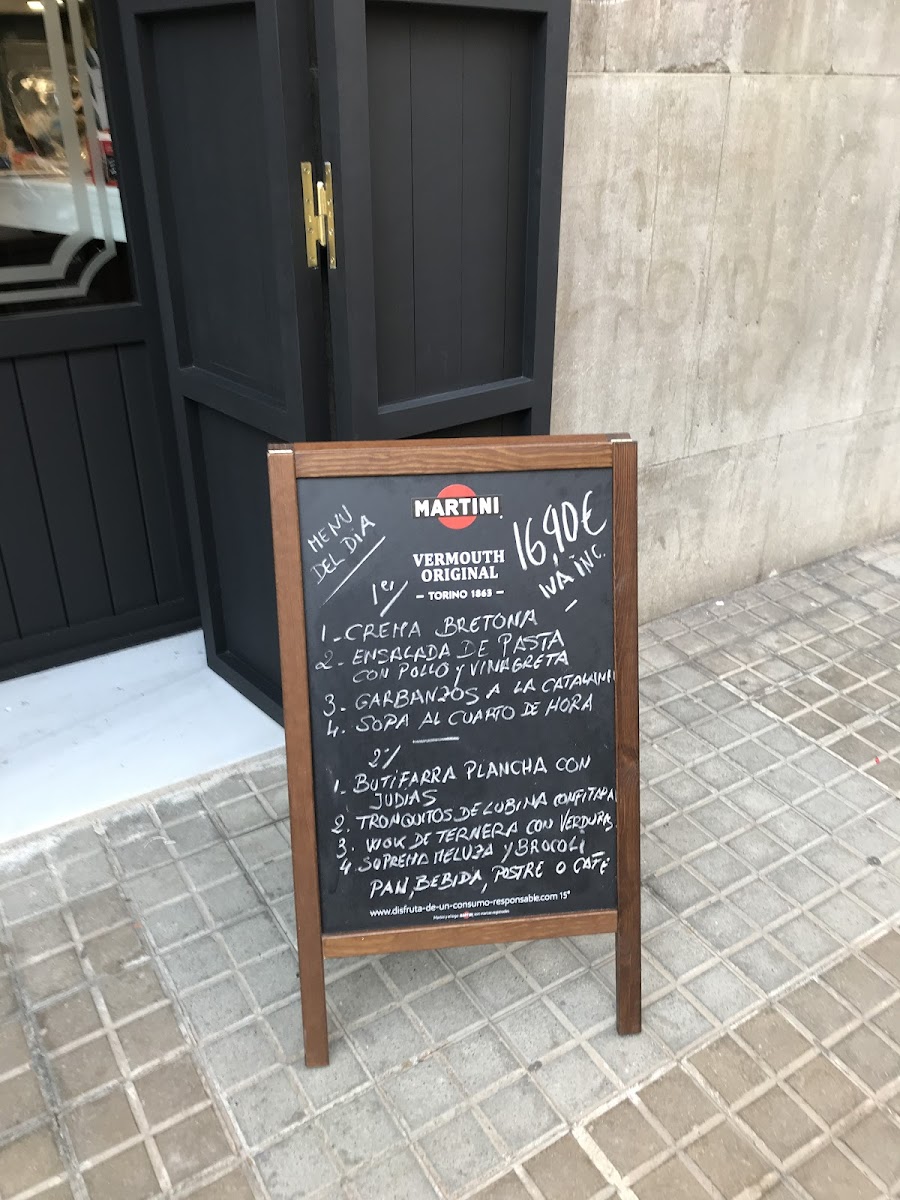 MARTINI
MENU
DEL DIA
16,90€
IVA INC.
VERMOUTH
ORIGINAL
— TORINO 1863 —
1er
1 - CREMA BRETONA
2 - ENSALADA DE PASTA
CON POLLO y VINAGRETA
3 - GARBANZOS A LA CATALANA
4 - SOPA AL CUARTO DE HORA
2º/
1 - BUTIFARRA PLANCHA CON
JUDIAS
2. TRONQUITOS DE LUBINA CONFITADA
3. WOK DE TERNERA CON VERDURAS
4. SUPREMA MELUZA y BROCOLI
PAN, BEBIDA, POSTRE O CAFÉ
www.disfruta-de-un-consumo-responsable.com 15°